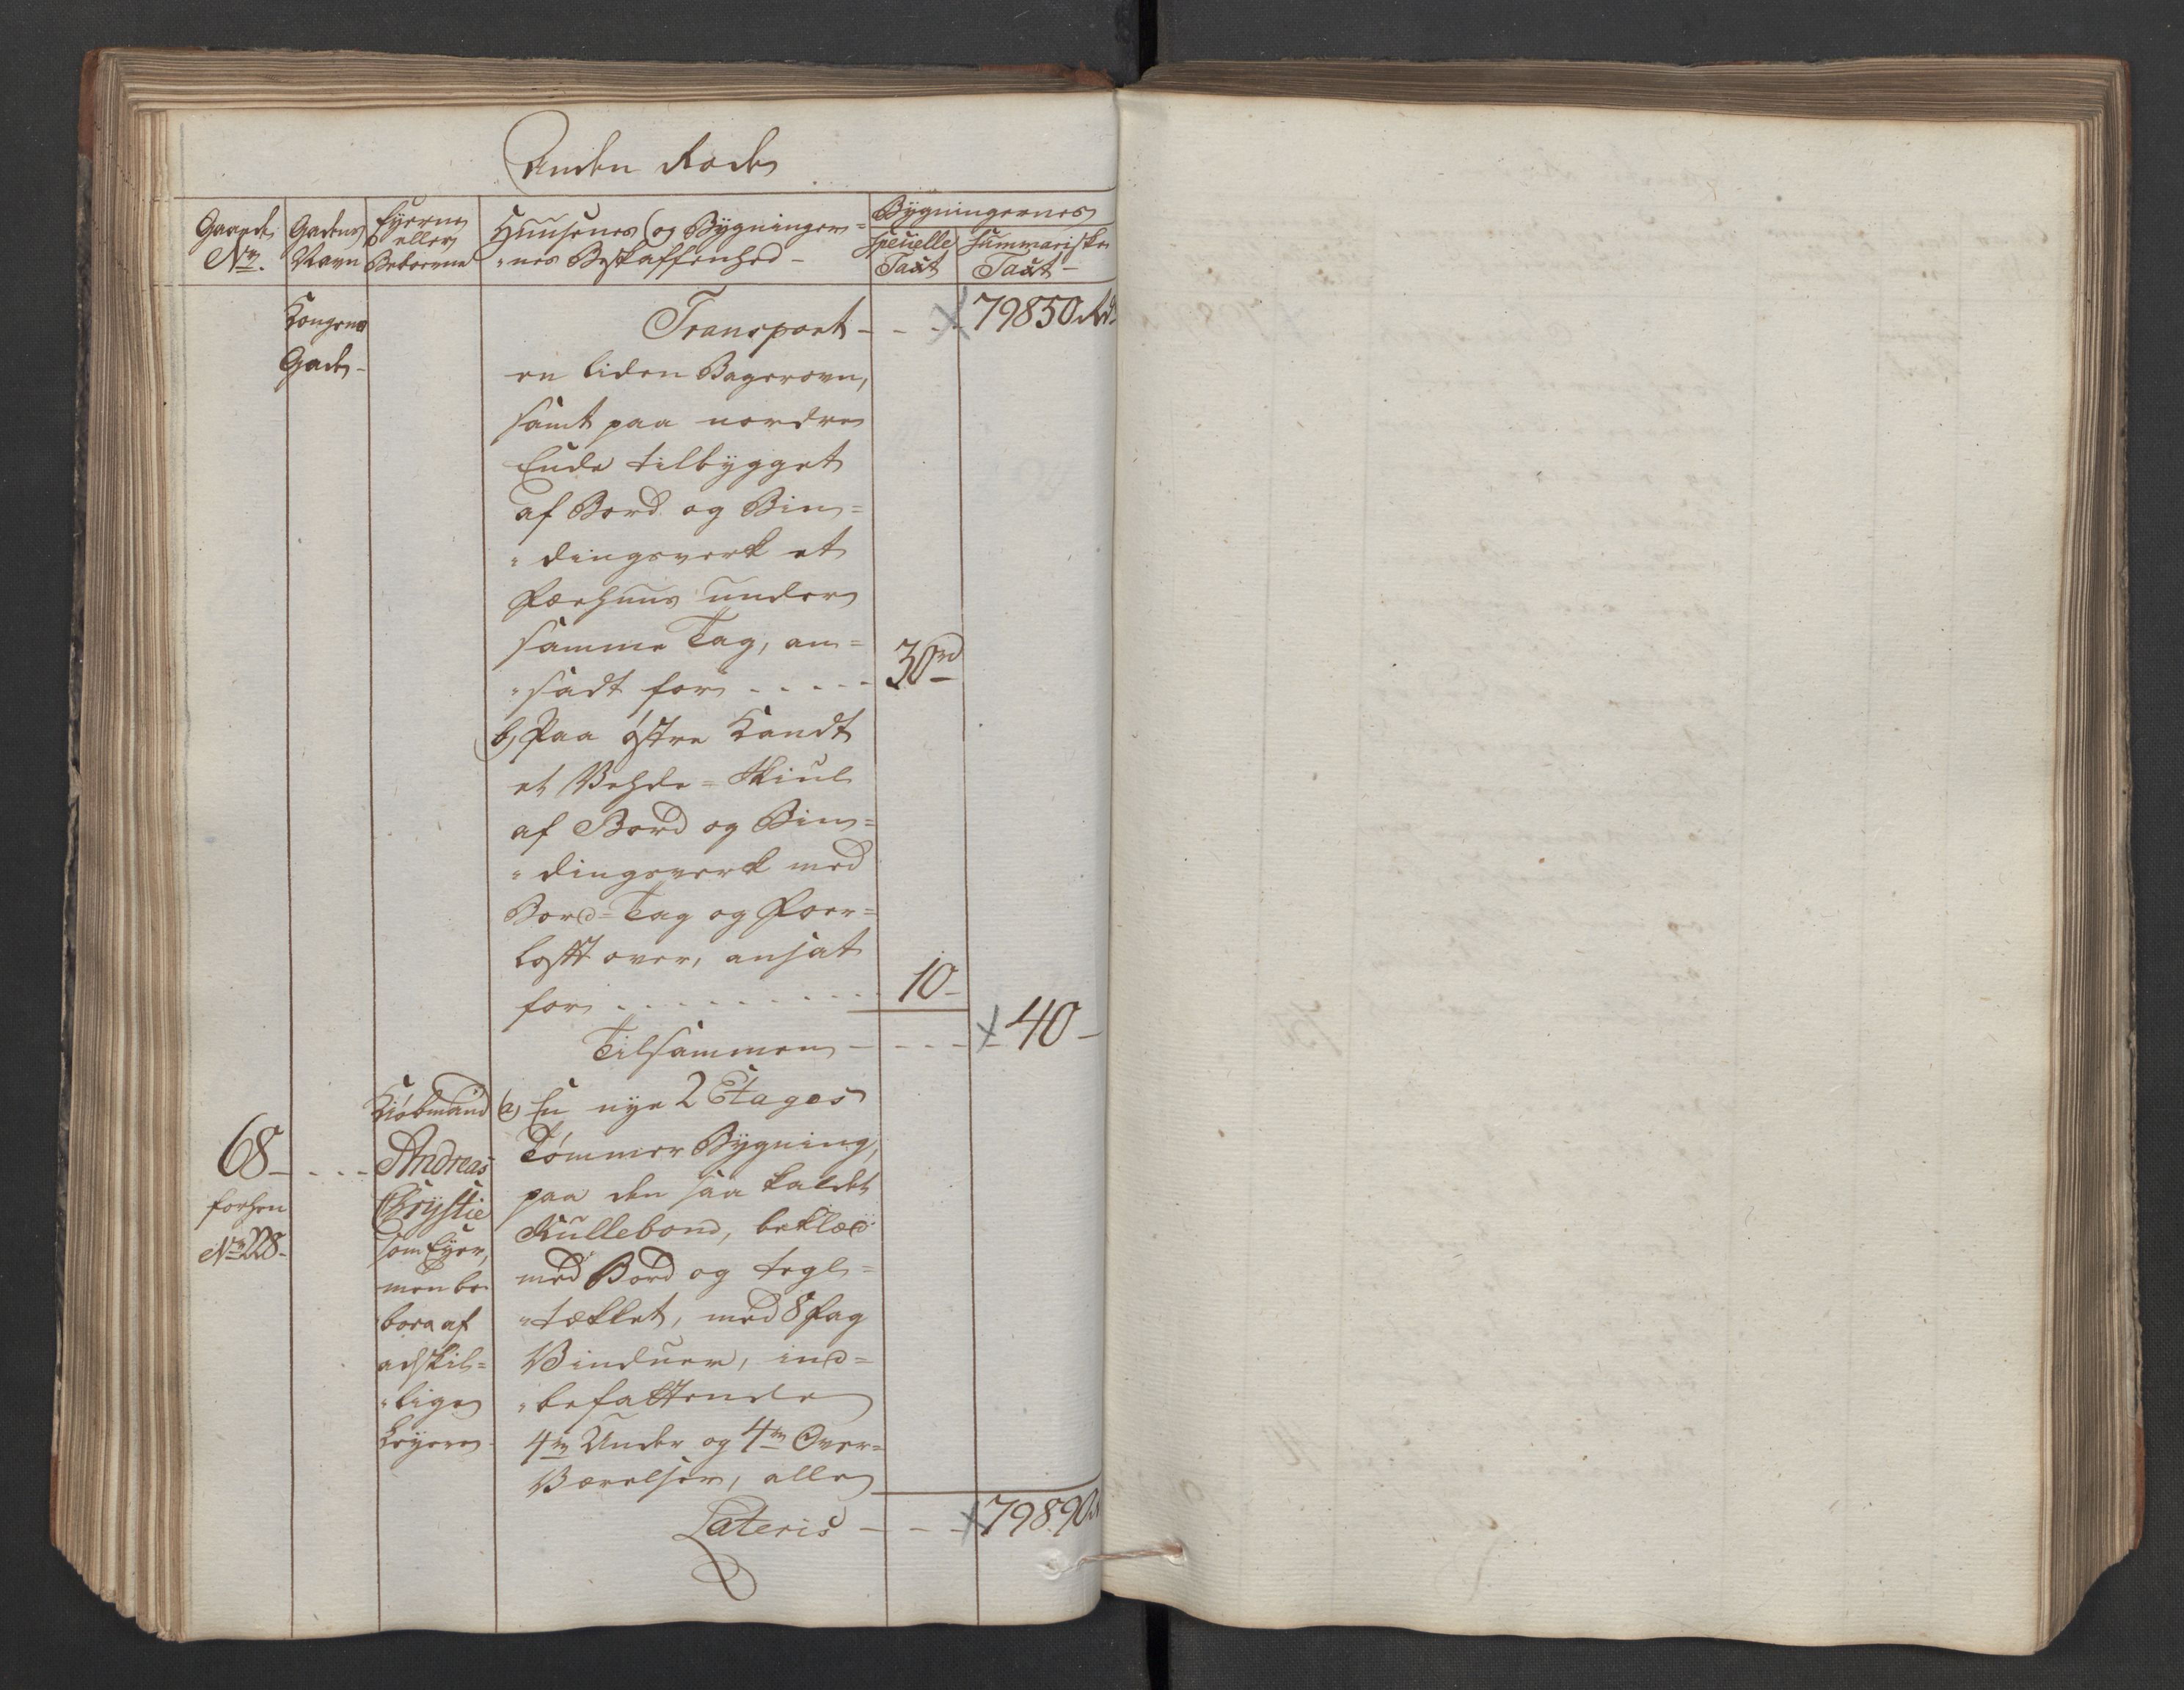 Anden Rode
Gaards No.
Gadens Navn
Eyerne eller Beboerne
Huusenes og Bygninger=
=nes Beskaffenhed -
Bygningernes
specielle Taxt
summariske Taxt -
Kongens Gade -
Transport - - - 79850 Rd
en liden Bagerovn,
samt paa nordre
Ende tilbygget
af Bord og Bin=
=dingsverk et
Fæehuus under
samme Tag, an=
=sadt for - - - - - 30 rd
b, Paa østre Kandt
et Vehde-Skiul
af Bord og Bin=
=dingsverk med
Bord-Tag og Foer=
Lofft over, ansat
for - - - - - - - - - 10 -
Tilsammen - - - - 40 -
68 - - - -
forhen
No 228 -
Kiøbmand
Andreas
Chrystie
som Eyer,
men be
boes af
adskil=
=lige
Leyere -
a, En nye 2 Etages
Tømmer Bygning,
paa den saa kaldet
Rullebond, beklæd
med Bord og tegl=
=tækket, med 8 Fag
Vinduer, ind=
=befattende
4re Under og 4re Over=
Værelser, alle
Lateris - - - 79890 rd